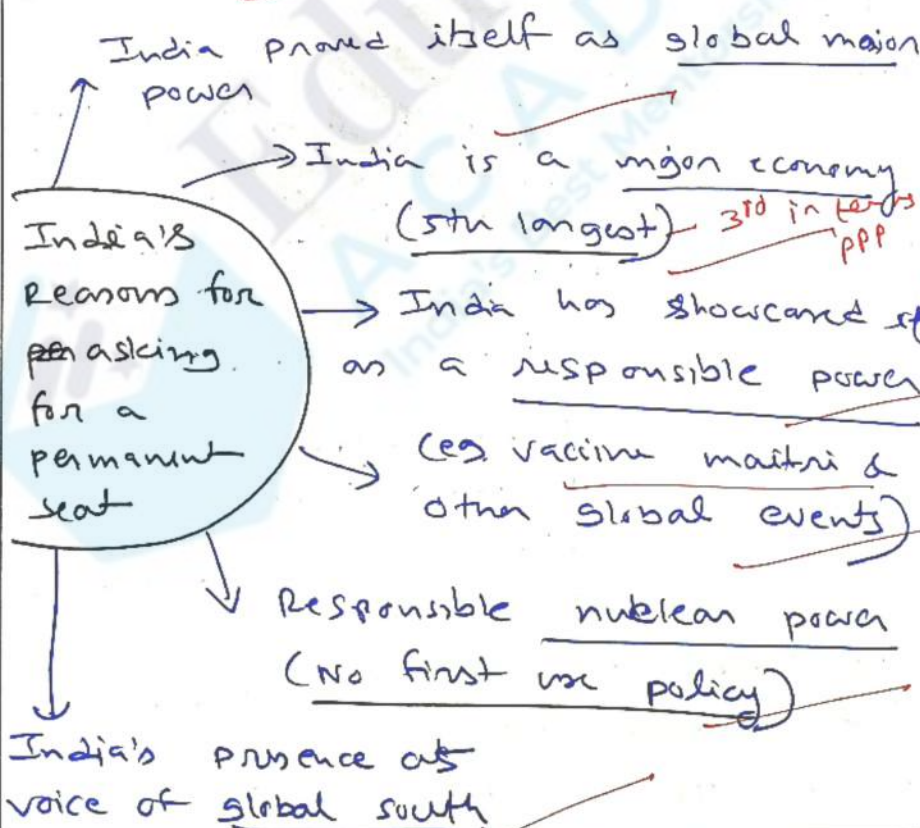 India proved itself as global major
power
India is a major economy
(5th largest) - 3rd in terms
PPP
India's
Reasons for
asking
for a
permanent
seat
India has showcased
as a responsible power
(eg vaccine maitri &
other global events)
Responsible nuclear power
(No first use policy)
India's presence as
voice of global south
ACAD
India's Best Mentorship